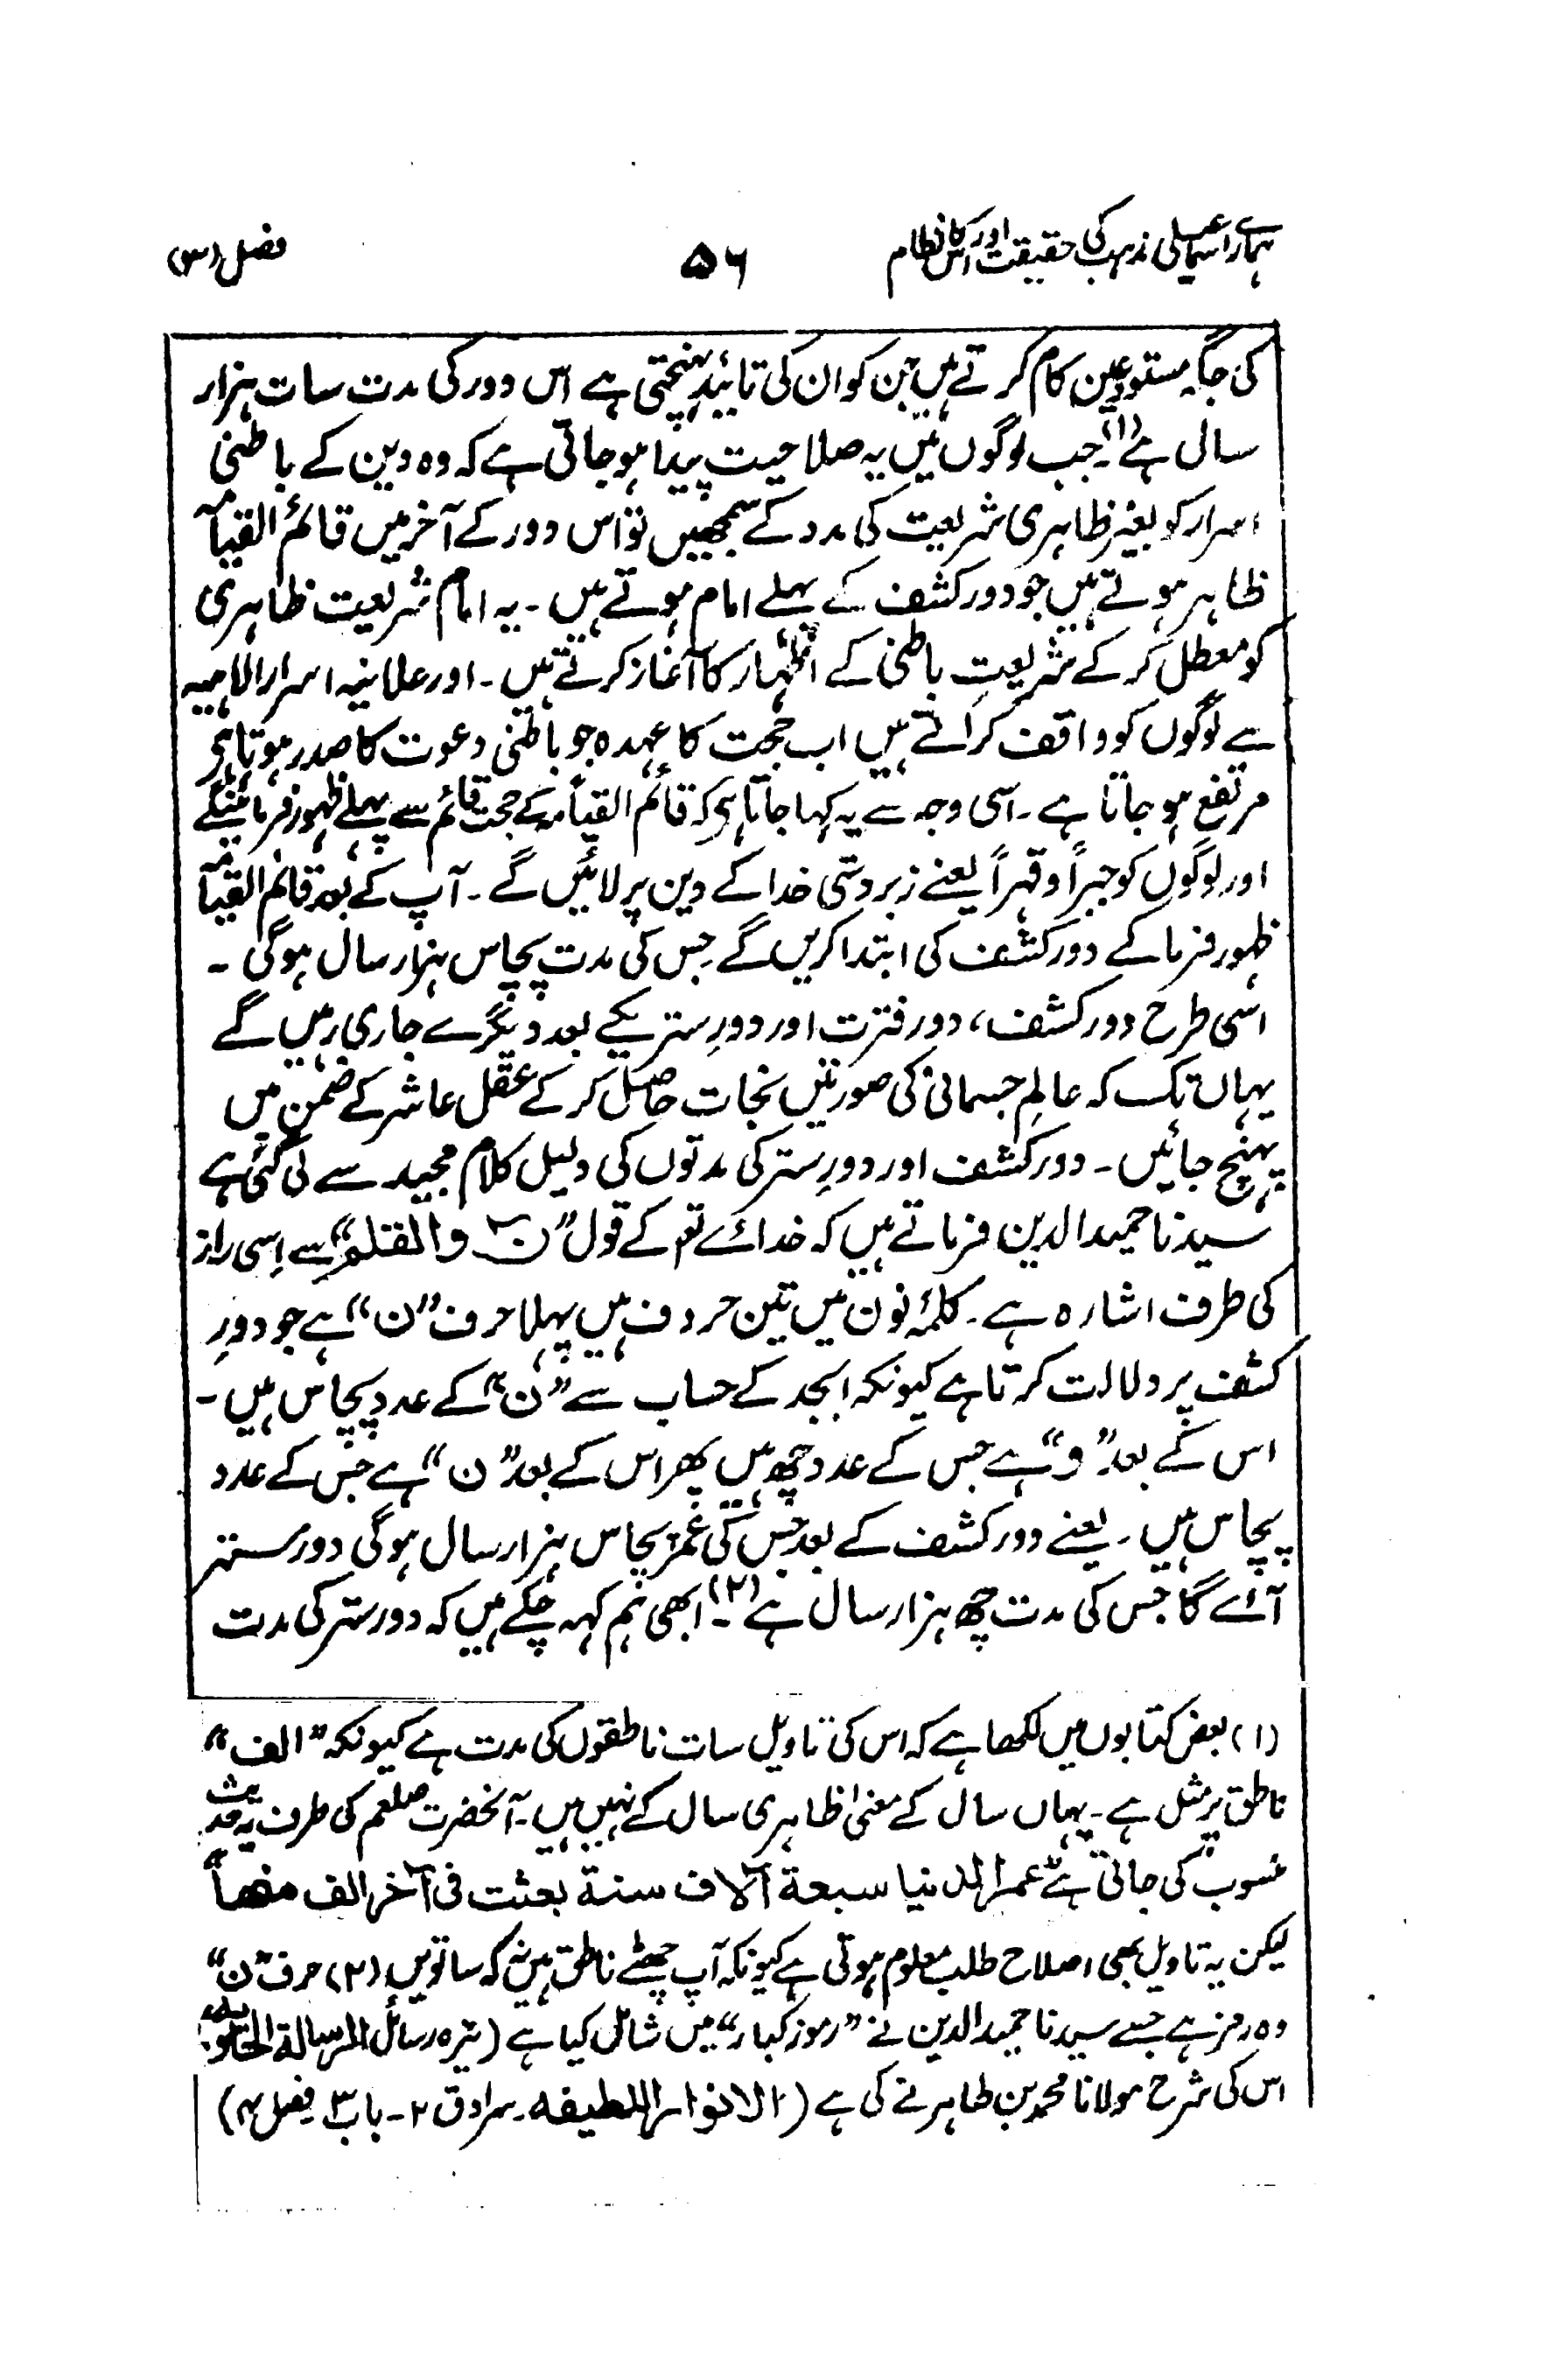 ہمارے اسماعیلی مذہب کی حقیقت اور اس کا نظام
۵۶
فصل (۳)
کی جگہ مستودعین کام کرتے ہیں جن کو ان کی تائید پہنچتی ہے اس دور کی مدت سات ہزار
سال ہے (۱)۔ جب لوگوں میں یہ صلاحیت پیدا ہو جاتی ہے کہ وہ دین کے باطنی
اسرار کو بغیر ظاہری شریعت کی مدد کے سمجھیں تو اس دور کے آخر میں قائم القیامہ
ظاہر ہوتے ہیں جو دور کشف کے پہلے امام ہوتے ہیں ۔ یہ امام شریعت ظاہری
کو معطل کر کے شریعتِ باطنی کے اظہار کا آغاز کرتے ہیں ۔ اور علانیہ اسرار الٰہیہ
سے لوگوں کو واقف کراتے ہیں اب حجت کا عہدہ جو باطنی دعوت کا صدر ہوتا ہی
مرتفع ہو جاتا ہے ۔ اسی وجہ سے یہ کہا جاتا ہی کہ قائم القیامہ کے حجت قائم سے پہلے ظہور فرمائینگے
اور لوگوں کو جبراً و قہراً یعنے زبردستی خدا کے دین پر لائیں گے ۔ آپ کے بعد قائم القیامہ
ظہور فرما کے دور کشف کی ابتدا کریں گے جس کی مدت پچاس ہزار سال ہوگی ۔
اسی طرح دور کشف، دور فترت اور دورِ ستر یکے بعد دیگرے جاری رہیں گے
یہاں تک کہ عالمِ جسمانی کی صورتیں نجات حاصل کر کے عقل عاشر کے ضمن میں
پہنچ جائیں ۔ دور کشف اور دورِ ستر کی مدتوں کی دلیل کلام مجید سے لی گئی ہے
سیدنا حمید الدین فرماتے ہیں کہ خدائے تم کے قول ”ن والقلم“ سے اِسی راز
کی طرف اشارہ ہے ۔ کلمۂ نون میں تین حروف ہیں پہلا حرف ”ن“ ہے جو دورِ
کشف پر دلالت کرتا ہے کیونکہ ابجد کے حساب سے ”ن“ کے عدد پچاس ہیں ۔
اس کے بعد ”و“ ہے جس کے عدد چھ ہیں پھر اس کے بعد ”ن“ ہے جس کے عدد
پچاس ہیں ۔ یعنے دور کشف کے بعد جس کی عمر پچاس ہزار سال ہوگی دور ستر
آئے گا جس کی مدت چھ ہزار سال ہے (۲)۔ ابھی ہم کہہ چکے ہیں کہ دور ستر کی مدت
(۱) بعض کتابوں میں لکھا ہے کہ اس کی تاویل سات ناطقوں کی مدت ہے کیونکہ ”الف“
ناطق پر مثل ہے ۔ یہاں سال کے معنیٰ ظاہری سال کے نہیں ہیں ۔ آنحضرت صلعم کی طرف یہ حدیث
منسوب کی جاتی ہے ”عمر الدنیا سبعة آلاف سنة بعثت فی آخر الف منھا“
لیکن یہ تاویل بھی اصلاح طلب معلوم ہوتی ہے کیونکہ آپ چھٹے ناطق ہیں نہ کہ ساتویں (۲) حرف ”ن“
وہ رمز ہے جسے سیدنا حمید الدین نے ”رموز کبار“ میں شامل کیا ہے (تیرہ رسائل الرسالة الحاویہ)
اس کی شرح مولانا محمد بن طاہر نے کی ہے (الانوار اللطیفہ ۔ سرادق ۲ ۔ باب ۳ فصل ۴)